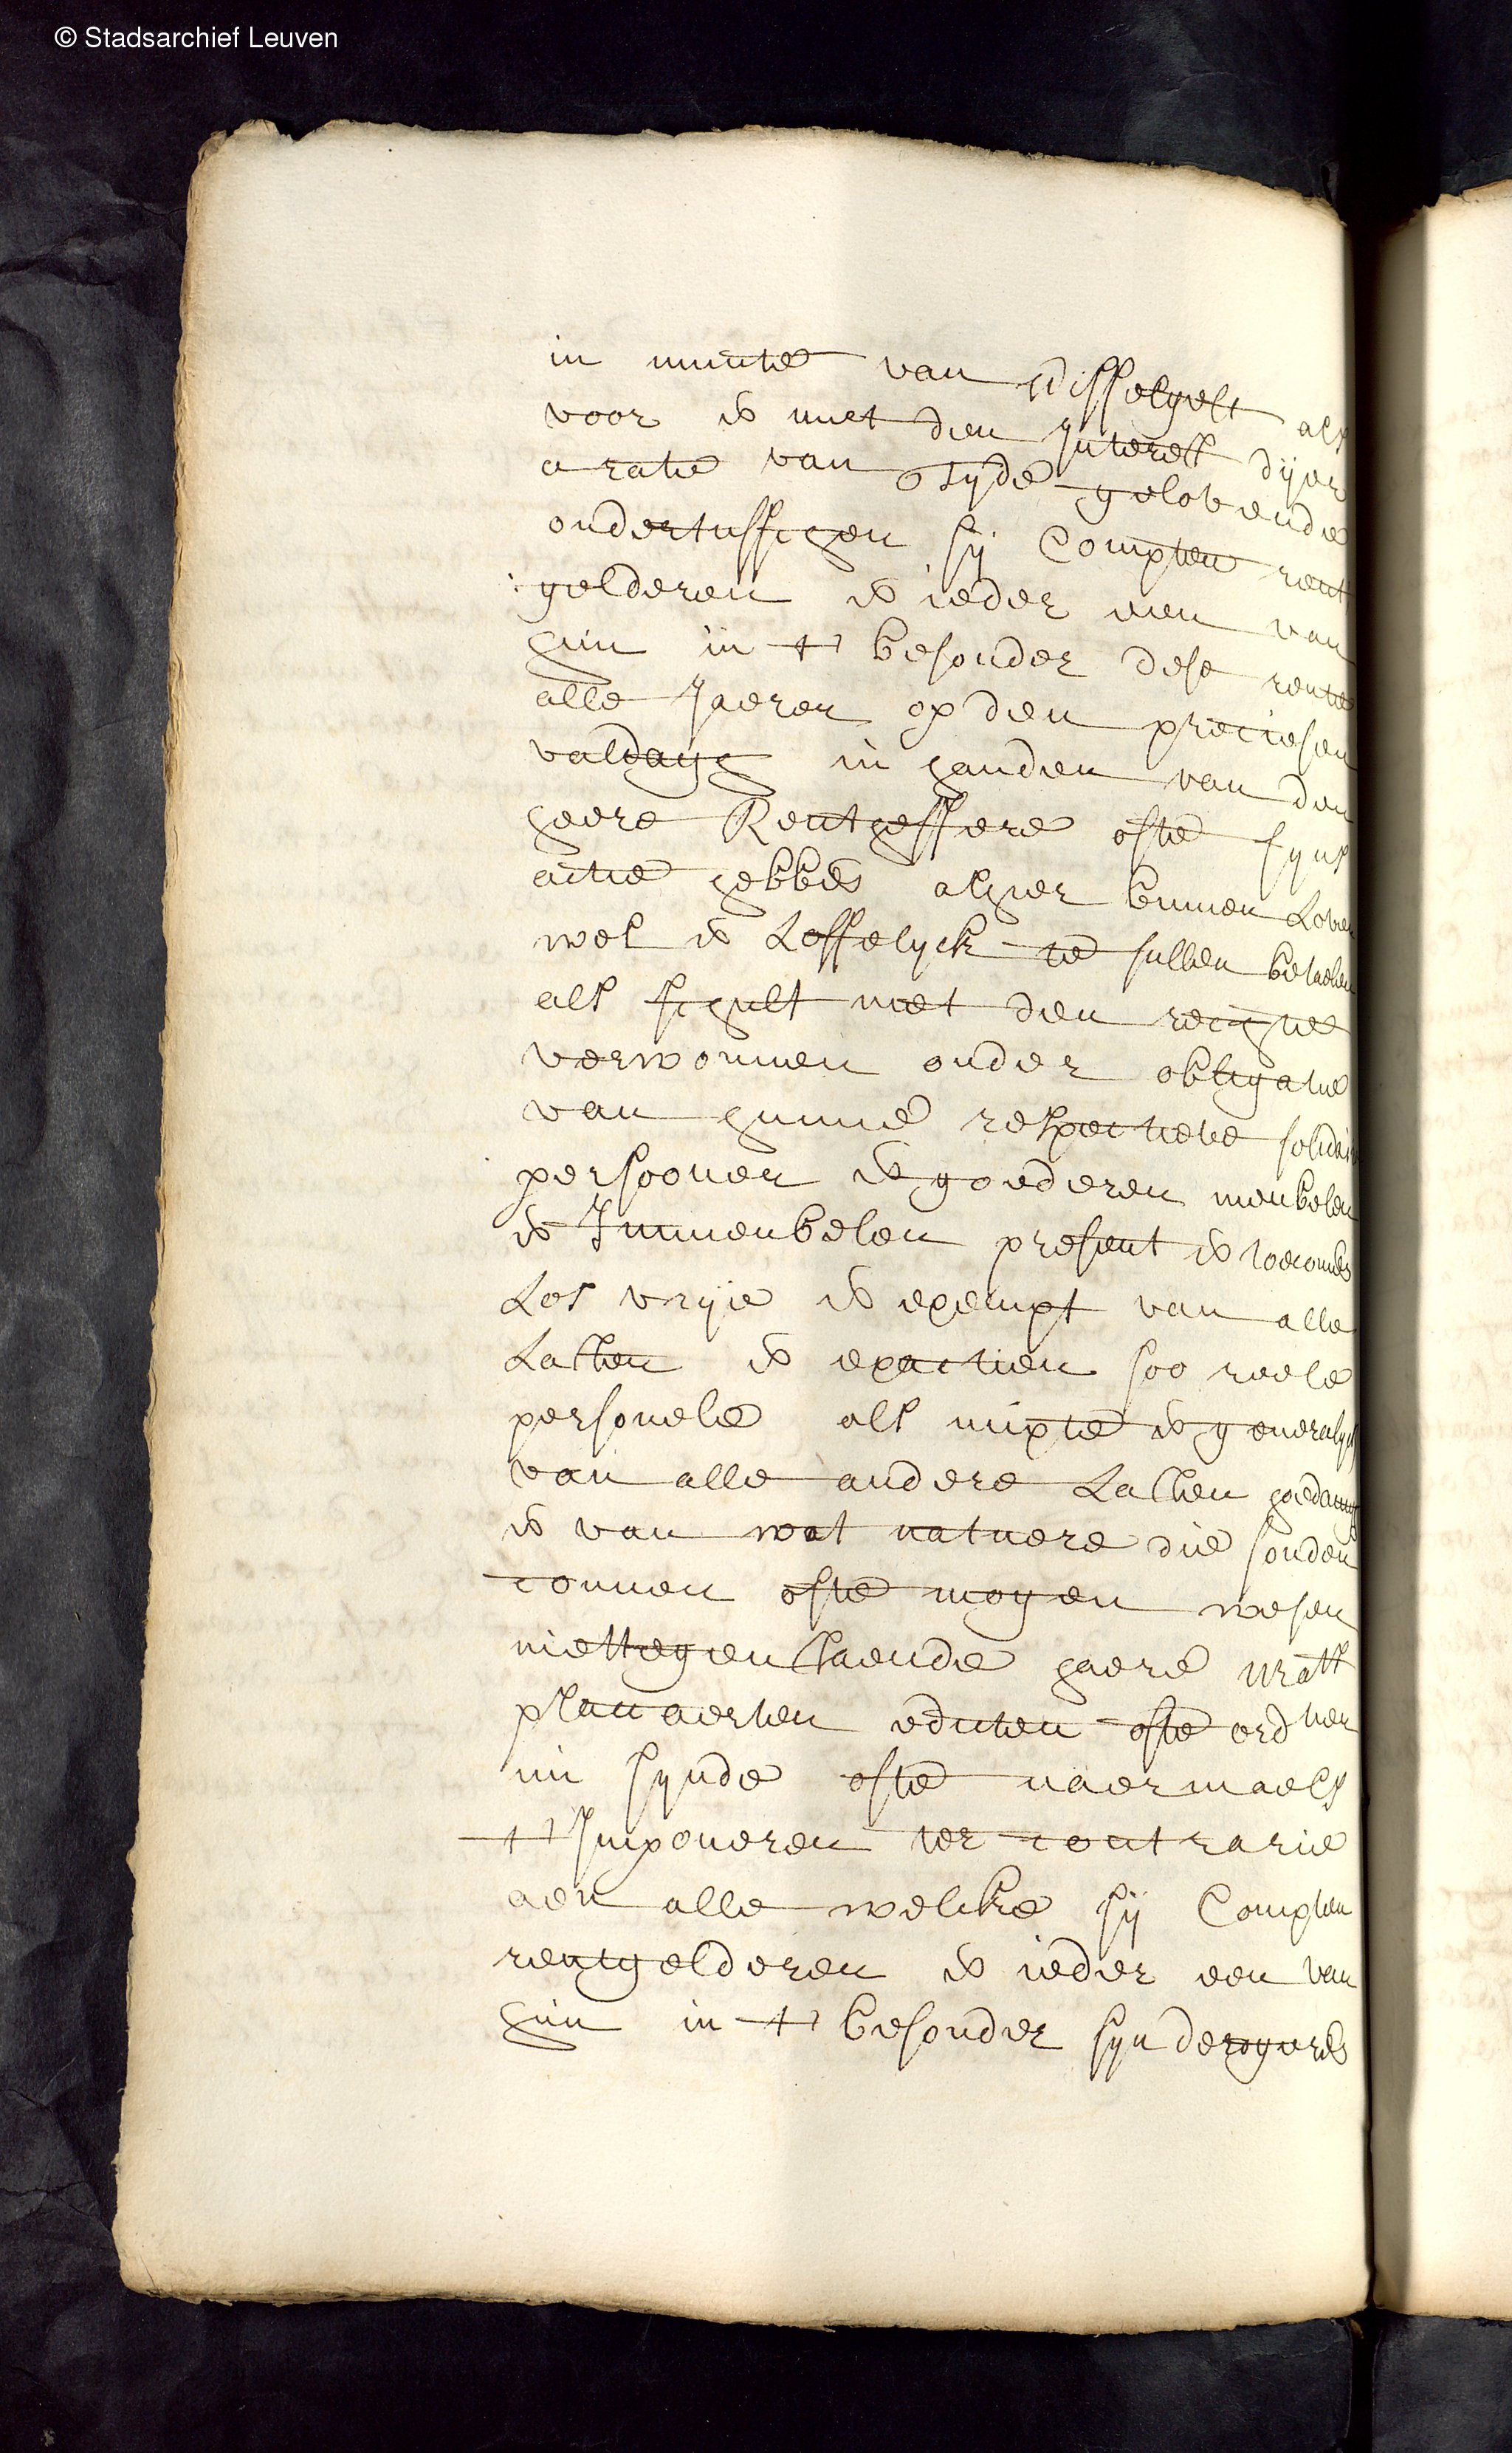 © Stadsarchief Leuven
in munte van wisselgelt als
voor et met den Interest dijer
a rate van tyde gelovende
ondertusschen sij Compten rent
gelderen et ieder een van
hun in t' besonder dese rente
alle Jaeren op den preciesen
valdagh in handen van den
heere Renthessere ofte syns
actie hebbes alhier binnen Loven
wel et Loffelyck te sullen betaelen
als schult met den rechte
verwonnen onder obligatie
van hunne respectieve solidaire
persoonen et goederen meubelen
et Immeubelen present et toecomdes
Los vrije et exempt van alle
Lasten et exactien soo reele
personele als mixte et generalyck
van alle andere Lasten hoedanigh
et van wat natuere die souden
connen ofte mogen wesen
niettegenstaende haere Matts
placcaerten edicten ofte ordtien
nu synde ofte naermaels
t' Imponeren ter contrarie
aen alle welcke sij Compten
rentgelderen et ieder een van
hun in t' besonder syn derogerdes